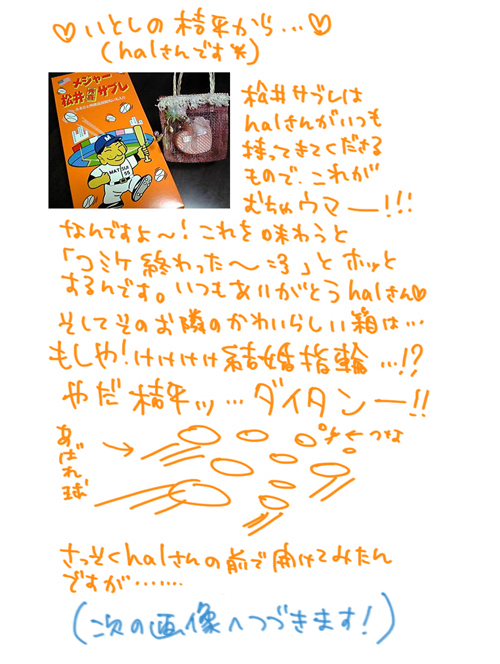 ♡いとしの桔平から…♡
(halさんです*)
メジャー
松井サブレ
MATSUI
55
松井サブレは
halさんがいつも
持ってきてくださる
もので、これが
むちゃウマー!!!
なんですよ〜!これを味わうと
「コミケ終わった〜=3」とホッと
するんです。いつもありがとうhalさん♡
そしてそのお隣のかわいらしい箱は…
もしや!けけけけ結婚指輪…!?
やだ桔平ッ…ダイタンー!!
あばれ球
→
←つな
さっそくhalさんの前で開けてみたん
ですが……
(次の画像へつづきます!)